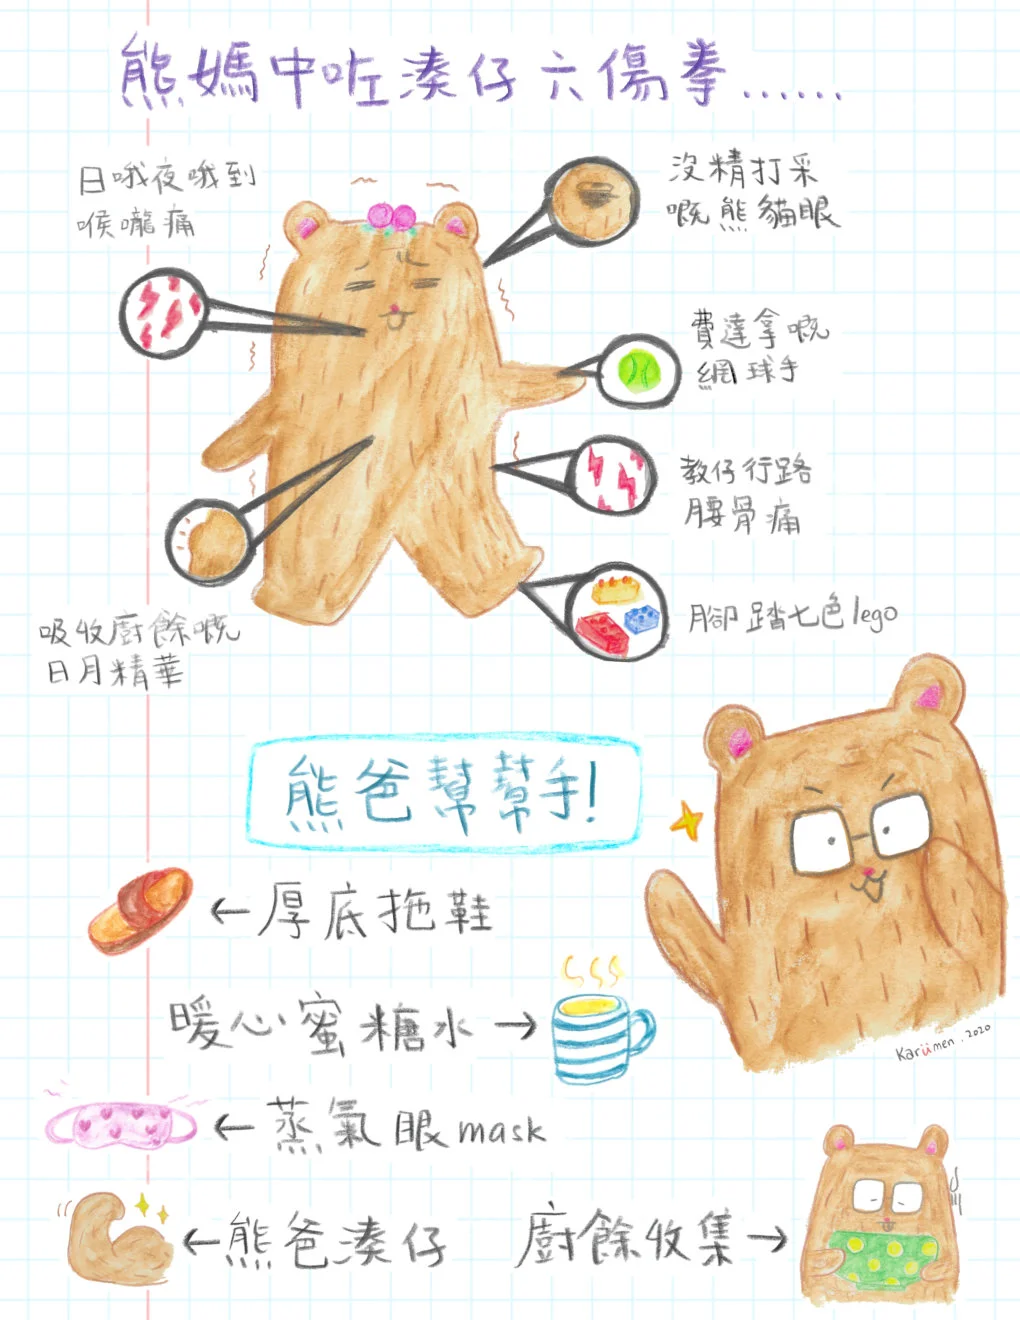 熊媽中咗湊仔六傷拳......
日哦夜哦到
喉嚨痛
沒精打采
嘅熊貓眼
費達拿嘅
網球手
教仔行路
腰骨痛
腳踏七色lego
吸收廚餘嘅
日月精華
熊爸幫幫手!
←厚底拖鞋
暖心蜜糖水→
Karümen.2020
←蒸氣眼mask
←熊爸湊仔
廚餘收集→